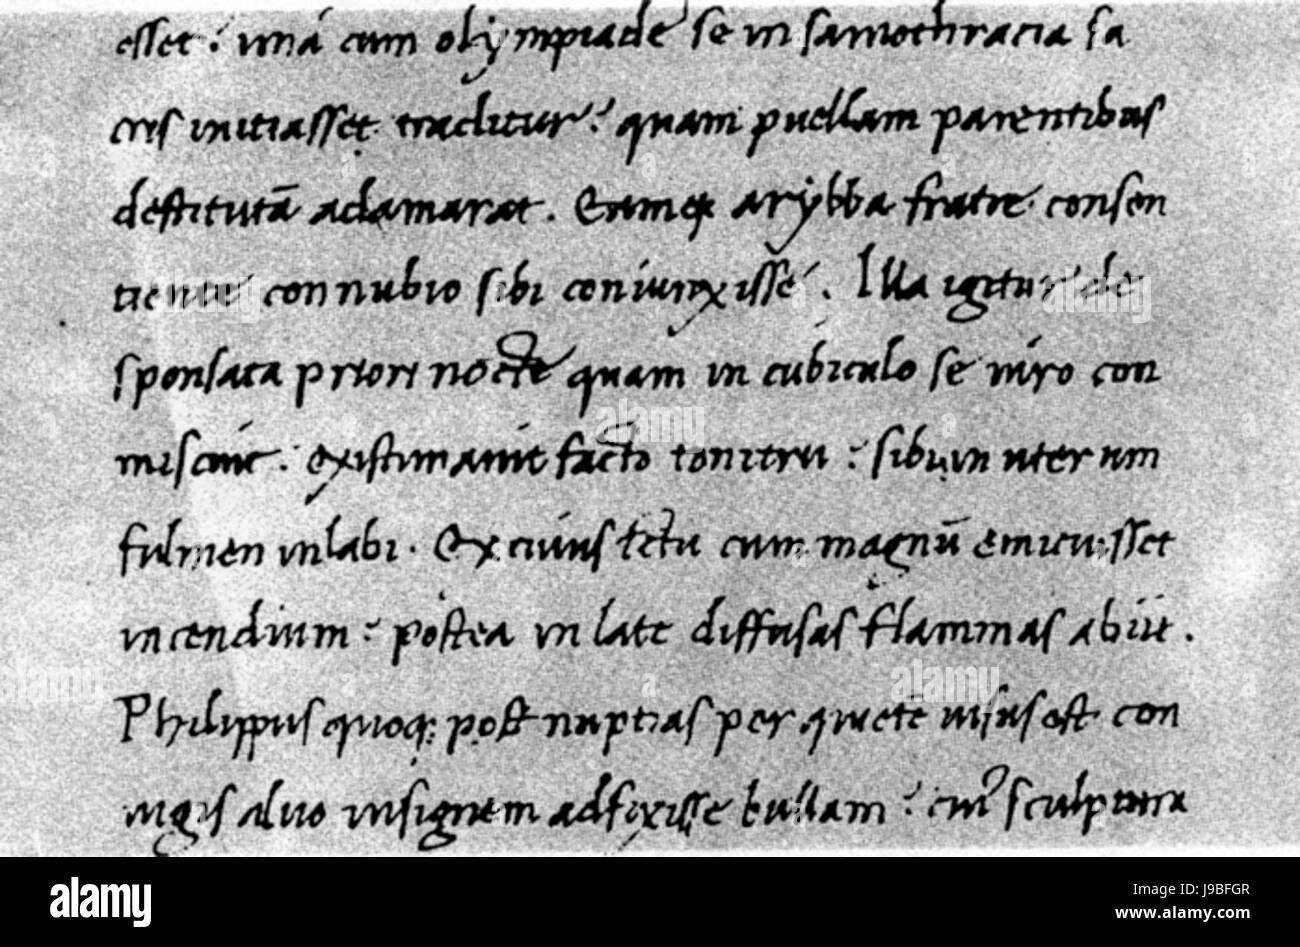 esset: una cum olympiade se in samothracia sa
cris initiasset traditur: quam puellam parentibus
destitutā adamarat. Eamq; arybba fratre consen
tiente connubio sibi coniunxisse. Illa igitur de
sponsata priori nocte quam in cubiculo se viro con
misceret: existimavit facto tonitru: sibi in uterum
fulmen inlabi. Ex cuius ictu cum magnū emicuisset
incendium: postea in late diffusas flammas abiit.
Philippus quoq; post nuptias per quietē visus est con
iugis alvo insignem adfixisse bullam: cui' sculptura
alamy
Image ID: J9BFGR
www.alamy.com